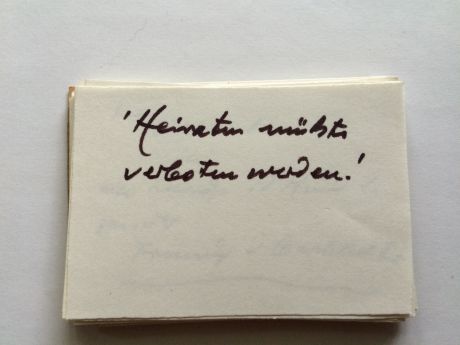 'Heiraten müßte
verboten werden.'